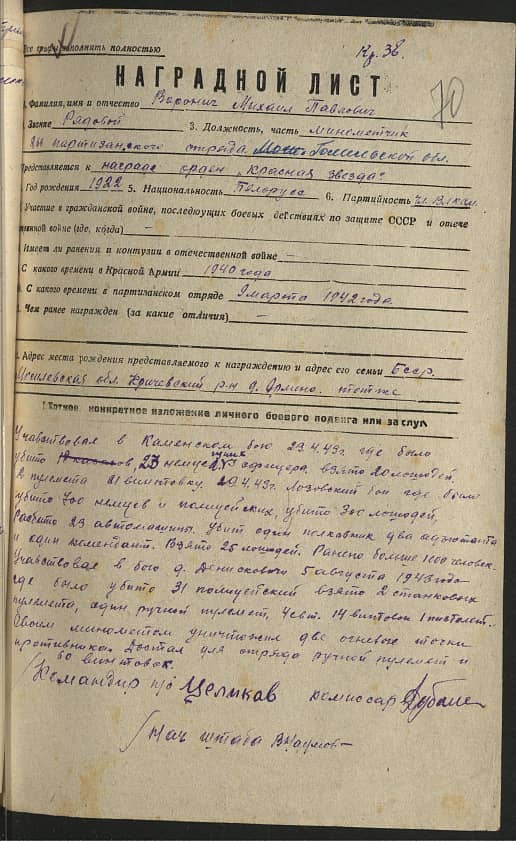 Все графы заполнять полностью
Кр. Зв.
НАГРАДНОЙ ЛИСТ
70
1. Фамилия, имя и отчество Воронич Михаил Павлович
2. Звание Рядовой 3. Должность, часть минеметчик
партизанского отряда Гомельской обл.
Представляется к награде орден „Красная звезда“
Год рождения 1922 5. Национальность Белорусс 6. Партийность чл. ВЛКСМ
Участие в гражданской войне, последующих боевых действиях по защите СССР и отече
ственной войне (где, когда) –
Имеет ли ранения и контузии в отечественной войне –
С какого времени в Красной Армии 1940 года
С какого времени в партизанском отряде 9 марта 1942 года
Чем ранее награжден (за какие отличия) –
Адрес места рождения представляемого к награждению и адрес его семьи Бсср.
Могилевская обл. Кричевский р-н д. тот же
Краткое, конкретное изложение личного боевого подвига или заслуг
Учавствовал в Каменском бою 29.4.43г. где было
убито 23 немец офицера, взято 20 лошадей,
2 пулемета 21 винтовку. 29.4.43г. Лозовский бой где было
убито 700 немцев и полицейских, убито 300 лошадей,
Разбито 23 автомашины. Убит один полковник два адютанта
и один комендант. Взято 25 лошадей. Ранено больше 1000 человек.
Учавствовал в бою д. Денисковичи 5 августа 1943 года
где было убито 31 полицейский взято 2 станковых
пулемета, один ручной пулемет, 14 винтовок 1 пистолет.
Своим минометом уничтожил две огневые точки
противника. Достал для отряда ручной пулемет и
60 винтовок.
/Командир п/о Целиков комиссар
/Нач штаба ВНаумов